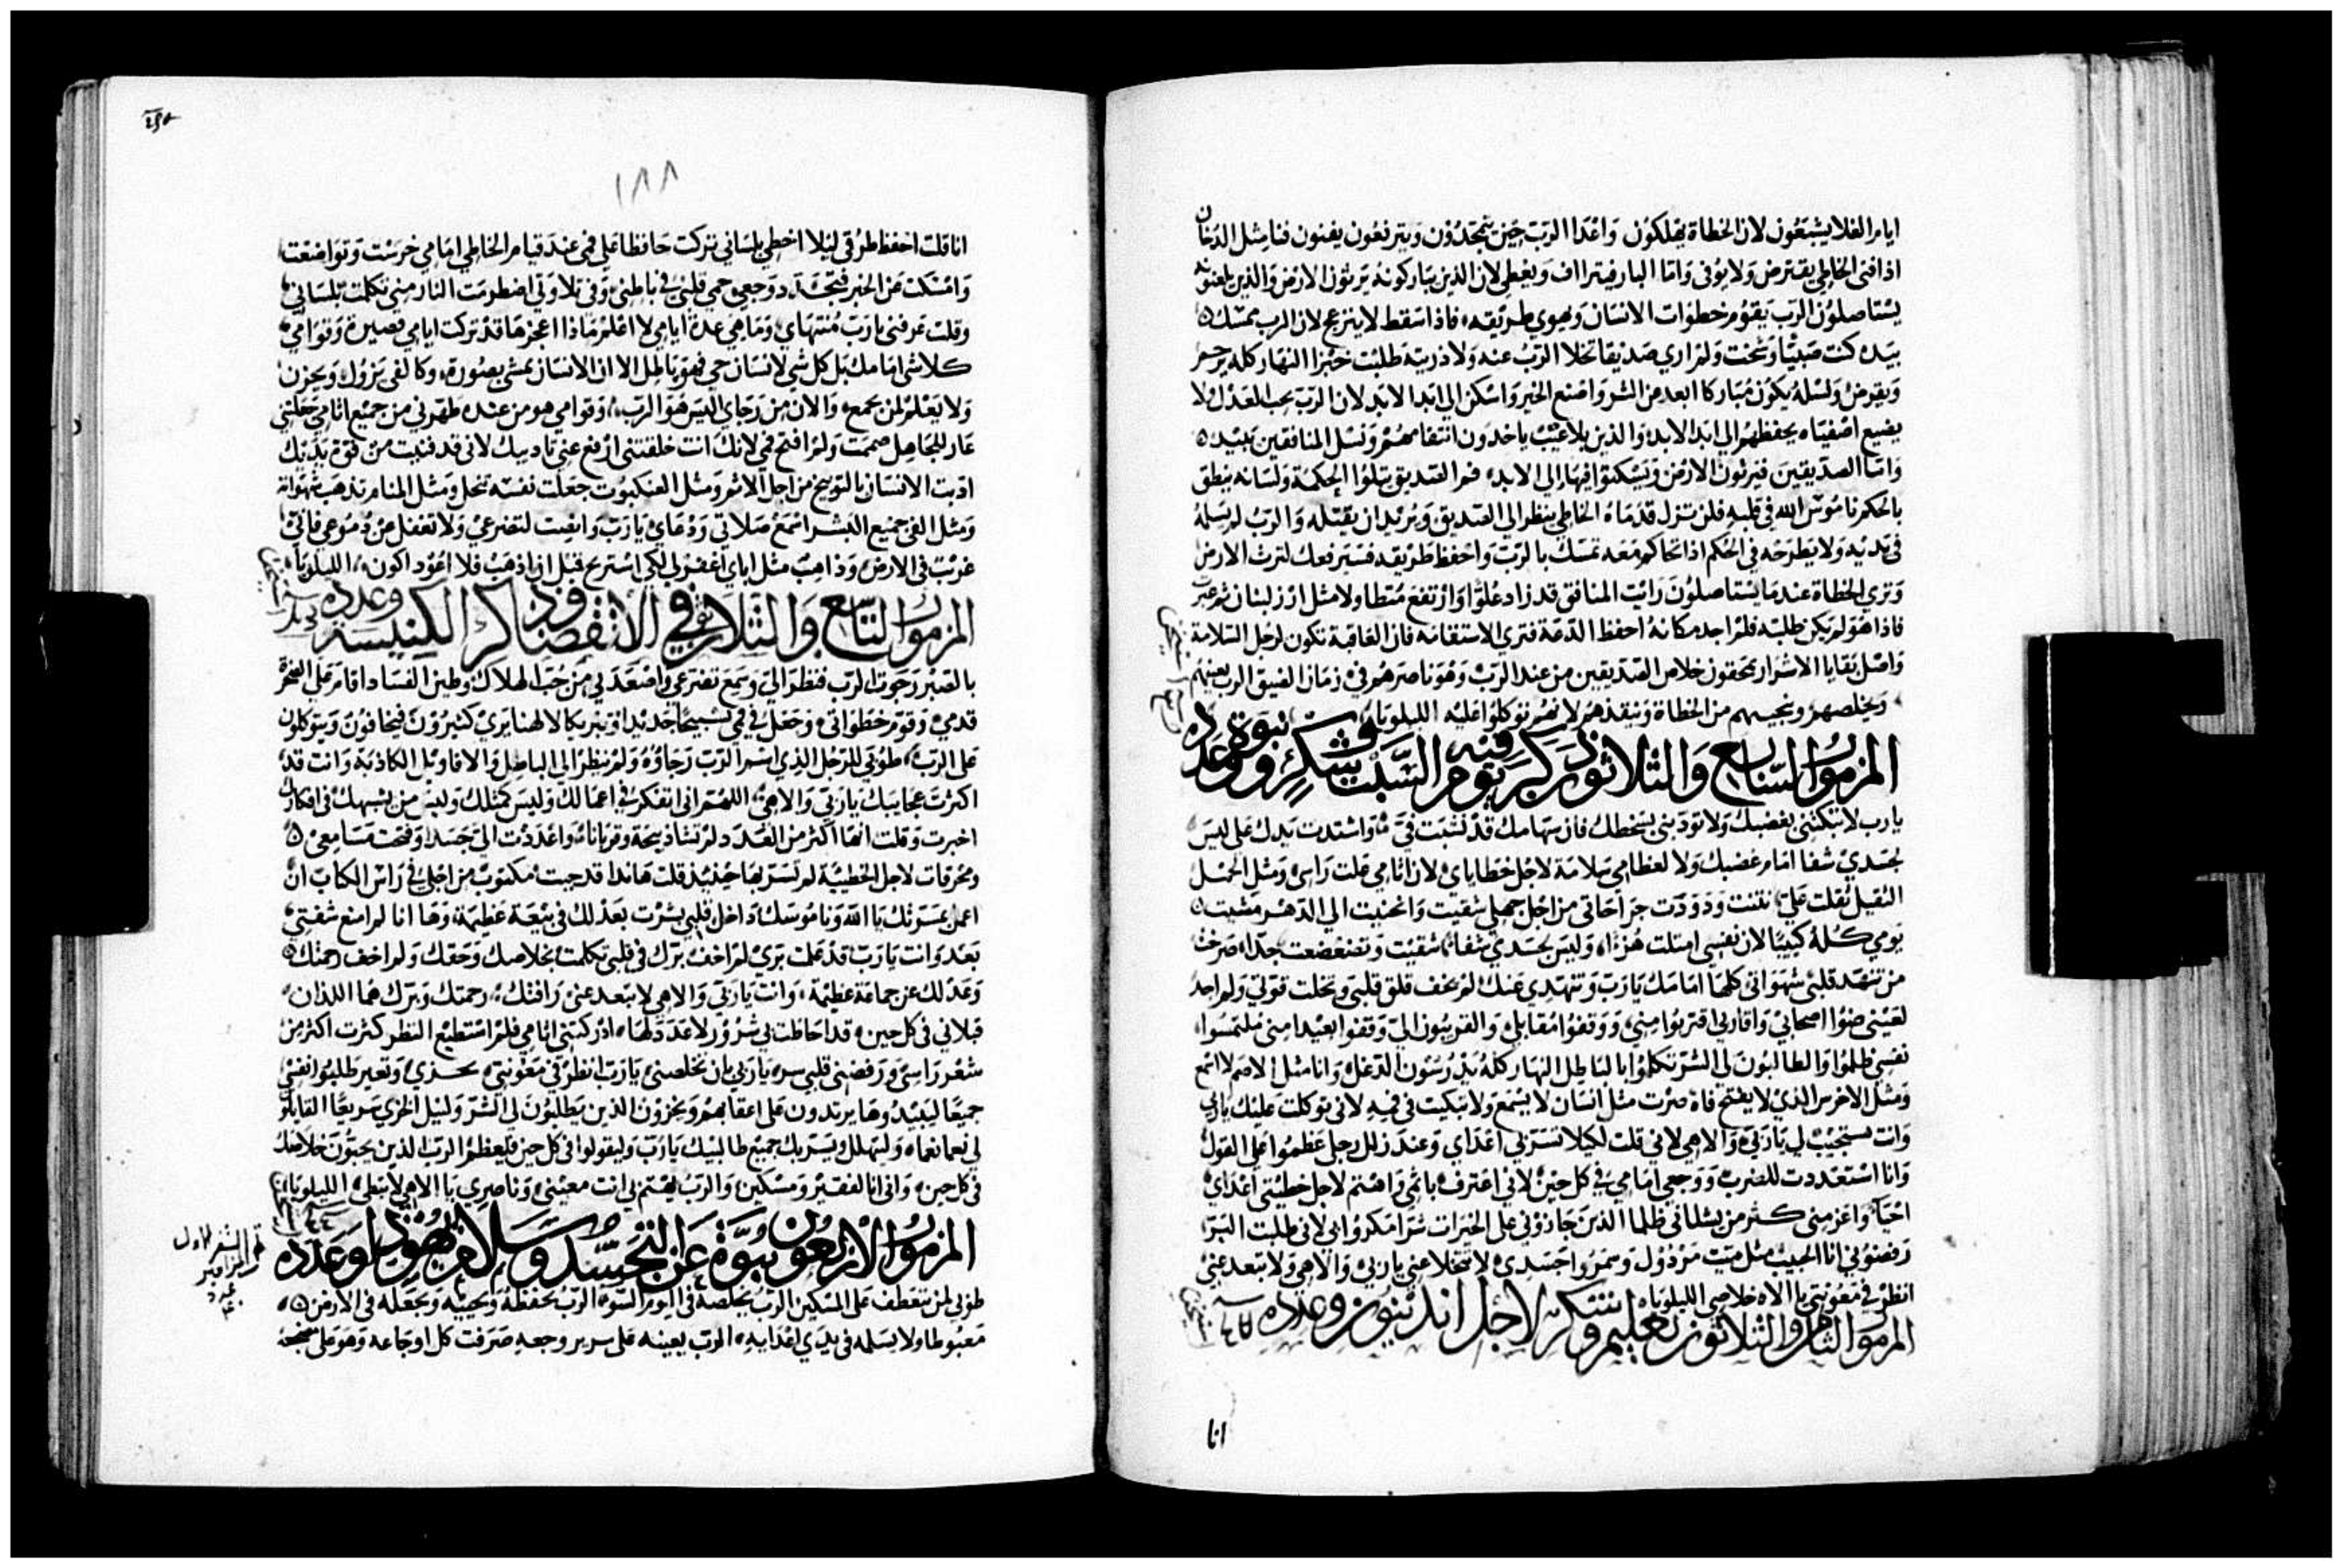 ايام الغلا يشبعون لان الخطاة يهلكون واعدا الرب حين يتمجدون ويترفعون يفنون فنا مثل الدخان
اذا فنى الخاطي يقترض ولا يوفى واما البار فيتراف ويعطى لان الذين يباركونه يرثون الارض والذين يلعنونه
يستاصلون الرب يقوم خطوات الانسان ويهوي طريقه فاذا سقط لا ينزعج لان الرب يمسك
بيده كنت صبيا وشخت ولم اري صديقا تخلا الرب عنه ولا ذريته طلبت خبزا النهار كله يرحم
ويقرض ونسله يكون مباركا ابعد من الشر واصنع الخير واسكن الى ابد الابد لان الرب يحب العدل ولا
يضيع اصفياه يحفظهم الى ابد الابد والذين بلا عيب ياخدون انتقامهم ونسل المنافقين يبيد
واما الصديقين فيرثون الارض ويسكنوا فيها الى الابد فم الصديق يتلوا الحكمة ولسانه ينطق
بالحكم ناموس الله فى قلبه فلن تزل قدماه الخاطي ينظر الى الصديق ويريد ان يقتله والرب لم يسلمه
فى يديه ولا يطرحه في الحكم اذا حاكمه معه تمسك بالرب واحفظ طريقه فسيرفعك لترث الارض
وتري الخطاة عندما يستاصلون رايت المنافق قد زاد علوا وارتفع متطاولا مثل ارز لبنان ثم عبرت
فاذا هو لم يكن طلبته فلم اجد مكانه احفظ الدعة فتري الاستقامه فان العاقبة تكون لرجل السلامة
واصل بقايا الاشرار يمحقون خلاص الصديقين من عند الرب وهو ناصرهم في زمان الضيق الرب يعينهم
ويخلصهم وينجيهم من الخطاة وينقذهم لانهم توكلوا عليه الليلويا
المزمور السابع والثلاثون ذكر فيه يوم السبت وشكر ونبوة وعدده
يارب لا تبكتنى بغضبك ولا تودبنى بسخطك فان سهامك قد نشبت فيّ واشتدت يدك على ليس
لجسدي شفا امام غضبك ولا لعظامى سلامة لاجل خطاياى لان اثامي علت راسى ومثل الحمل
الثقيل ثقلت علي نتنت ودودت جراحاتى من اجل جهلي شقيت وانحنيت الى الدهر مشيت
يومي كله كييبا لان نفسي امتلت هزءا وليس لجسدي شفا شقيت وتضعضعت جدا صرخت
من تنهد قلبي شهواتى كلها امامك يارب وتنهدي عنك لم يخف قلق قلبى وتخلت قوتي ولم اجد
لعينى ضوا اصحابي واقاربى اقتربوا مني ووقفوا مقابلى والقريبون الىّ وقفوا بعيدا منى ملتمسوا
نفسى ظلموا والطالبون لى الشر تكلموا بالباطل النهار كله يدرسون الدغل وانا مثل الاصم لا اسمع
ومثل الاخرس الذي لا يفتح فاه صرت مثل انسان لا يسمع ولا تبكيت فى فيه لانى توكلت عليك يارب
وانت تستجيب لى ياربى والاهى لانى قلت لكيلا تسر بى اعداي وعند زلل رجلى عظموا علي القول
وانا استعددت للضرب ووجعي امامي في كل حين لانى اعترف باثمي واهتم لاجل خطيتى اعداي
احيا واعز منى كثر من يشنانى ظلما الذين جازوني على الخيرات شرا مكروا بى لانى طلبت البر
رفضوني انا الحبيب مثل ميت مرذول وسمروا جسدي لا تتخلا عني ياربى والاهى ولا تبعد عنى
انظر في معونتى يا الاه خلاصى الليلويا
المزمور الثامن والثلاثون تعليم وشكر لاجل اندثيون وعدده
انا
١٨٨
انا قلت احفظ طرقى ليلا اخطي بلسانى تركت حافظا على فمى عند قيام الخاطى امامي خرست وتواضعت
وامسكت عن الخير فتجدد وجعى حمى قلبي في باطنى وفى تلاوتى اضطرمت النار منى تكلمت بلسانى
وقلت عرفنى يارب منتهاي وما هى عدة ايامي لا اعلم ماذا اعجزها قد تركت ايامي قصيرة وقوامي
كلا شى امامك بل كل شى لانسان حي فهو باطل الا ان الانسان يمشي بصورة وكالفى يزول ويحزن
ولا يعلم لمن يجمع والان من رجاي اليس هو الرب وقوامي هو من عنده طهرني من جميع اثامي جعلتني
عار للجاهل صممت ولم افتح فمى لانك انت خلقتنى ارفع عني تاديبك لانى قد فنيت من قوة يدك
ادبت الانسان بالتوبيخ من اجل الاثم ومثل العنكبوت جعلت نفسه تنحل ومثل المنام تذهب شهواته
ومثل الفى جميع البشر اسمع صلاتى ودعاي يارب وانصت لتضرعي ولا تغفل عن دموعى فانى
غريب فى الارض وذاهب مثل اباي اغفر لى لكى استريح قبل ان اذهب فلا اعود اكون الليلويا
المزمور التاسع والثلاثون في الانقضا وذاكر الكنيسه وعدده
بالصبر رجوت الرب فنظر الىّ وسمع تضرعي واصعدني من جب الهلاك وطين الفساد اقام على الصخرة
قدمي وقوم خطواتي وجعل في فمى تسبيحا جديدا وتبريكا لالهنا يري كثيرون فيخافون ويتوكلون
على الرب طوبى للرجل الذي اسم الرب رجاؤه ولم ينظر الى الباطل والاقاويل الكاذبة وانت قد
اكثرت عجايبك ياربى والاهى اللهم انى اتفكر في اعمالك وليس كمثلك وليس من يشبهك فى افكارك
اخبرت وقلت انها اكثر من العدد لم تشا ذبيحة وقربانا واعددت الى جسدا وفتحت مسامعى
ومحرقات لاجل الخطيئة لم تسر بها حينيذ قلت هاندا قد جيت مكتوب من اجلى في راس الكتاب ان
اعمل بمسرتك يا الله وناموسك داخل قلبى بشرت بعدلك فى بيعة عظيمة وها انا لم امنع شفتى
بعد وانت يارب قد علمت بري لم اخف برك فى قلبى تكلمت بخلاصك وحقك ولم اخف رحمتك
وعدلك عن جماعة عظيمة وانت ياربى والاهى لا تبعد عنى رافتك رحمتك وبرك هما اللذان
قبلانى فى كل حين قد احاطت بى شرور لا عدد لها ادركتنى اثامي فلم استطيع النظر كثرت اكثر من
شعر راسى ورفضنى قلبي سر ياربى بان تخلصنى يارب انظر فى معونتى يخزي وتعير طالبوا نفسى
جميعا ليبيدوها يرتدون على اعقابهم ويخزون الذين يطلبون لى الشر ولينل الخزي سريعا القايلون
لى نعما نعماه وليتهلل ويسر بك جميع طالبيك يارب وليقولوا فى كل حين فليعظم الرب الذين يحبون خلاصك
فى كل حين وانى انا لفقير ومسكين والرب يهتم لى انت معينى وناصري يا الاهى لا تبطى الليلويا
المزمور الاربعون نبوة عن التجسد وسلام يهودا وعدده
طوبى لمن يتعطف على المسكين الرب يخلصه فى اليوم السوء الرب يحفظه ويحييه ويجعله فى الارض
مغبوطا ولا يسلمه فى يدي اعدايه الرب يعينه على سرير وجعه صرفت كل اوجاعه وهو على مضجعه